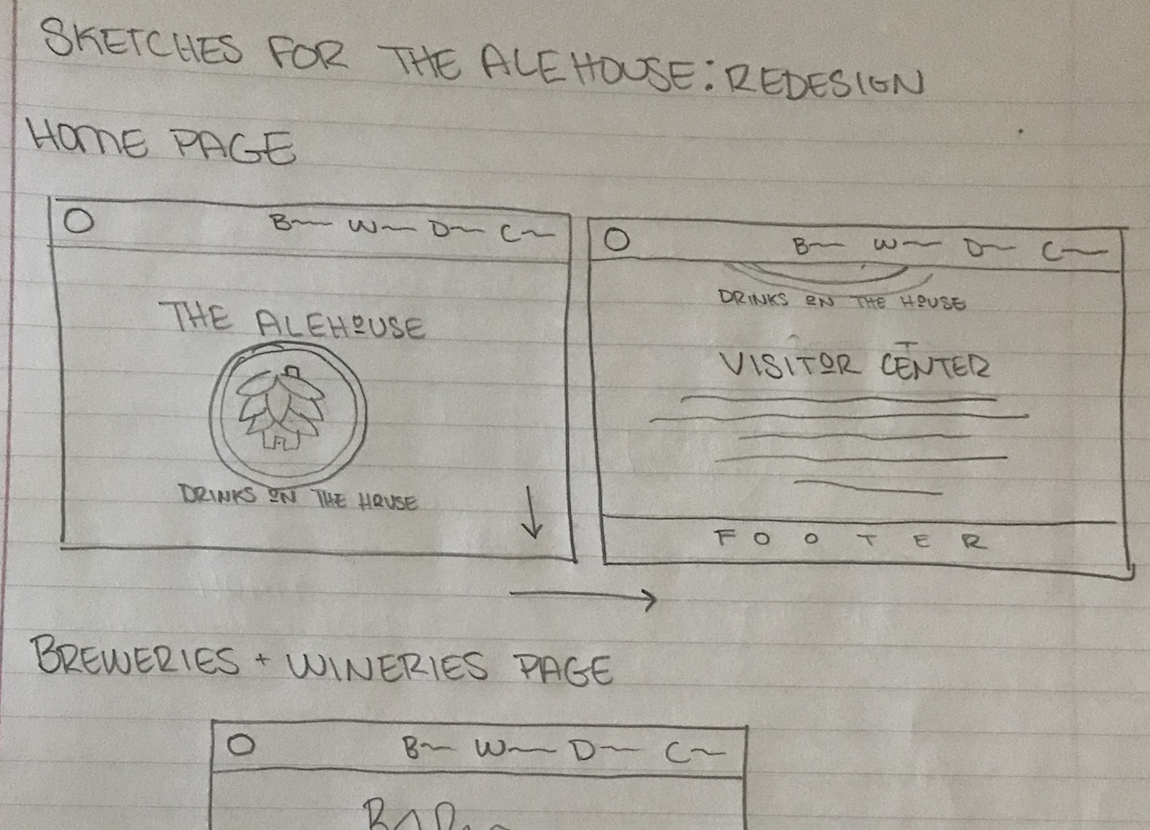 SKETCHES FOR THE ALEHOUSE: REDESIGN
HOME PAGE
B W D C
THE ALEHOUSE
DRINKS ON THE HOUSE
B W D C
DRINKS ON THE HOUSE
VISITOR CENTER
FOOTER
BREWERIES + WINERIES PAGE
B W D C